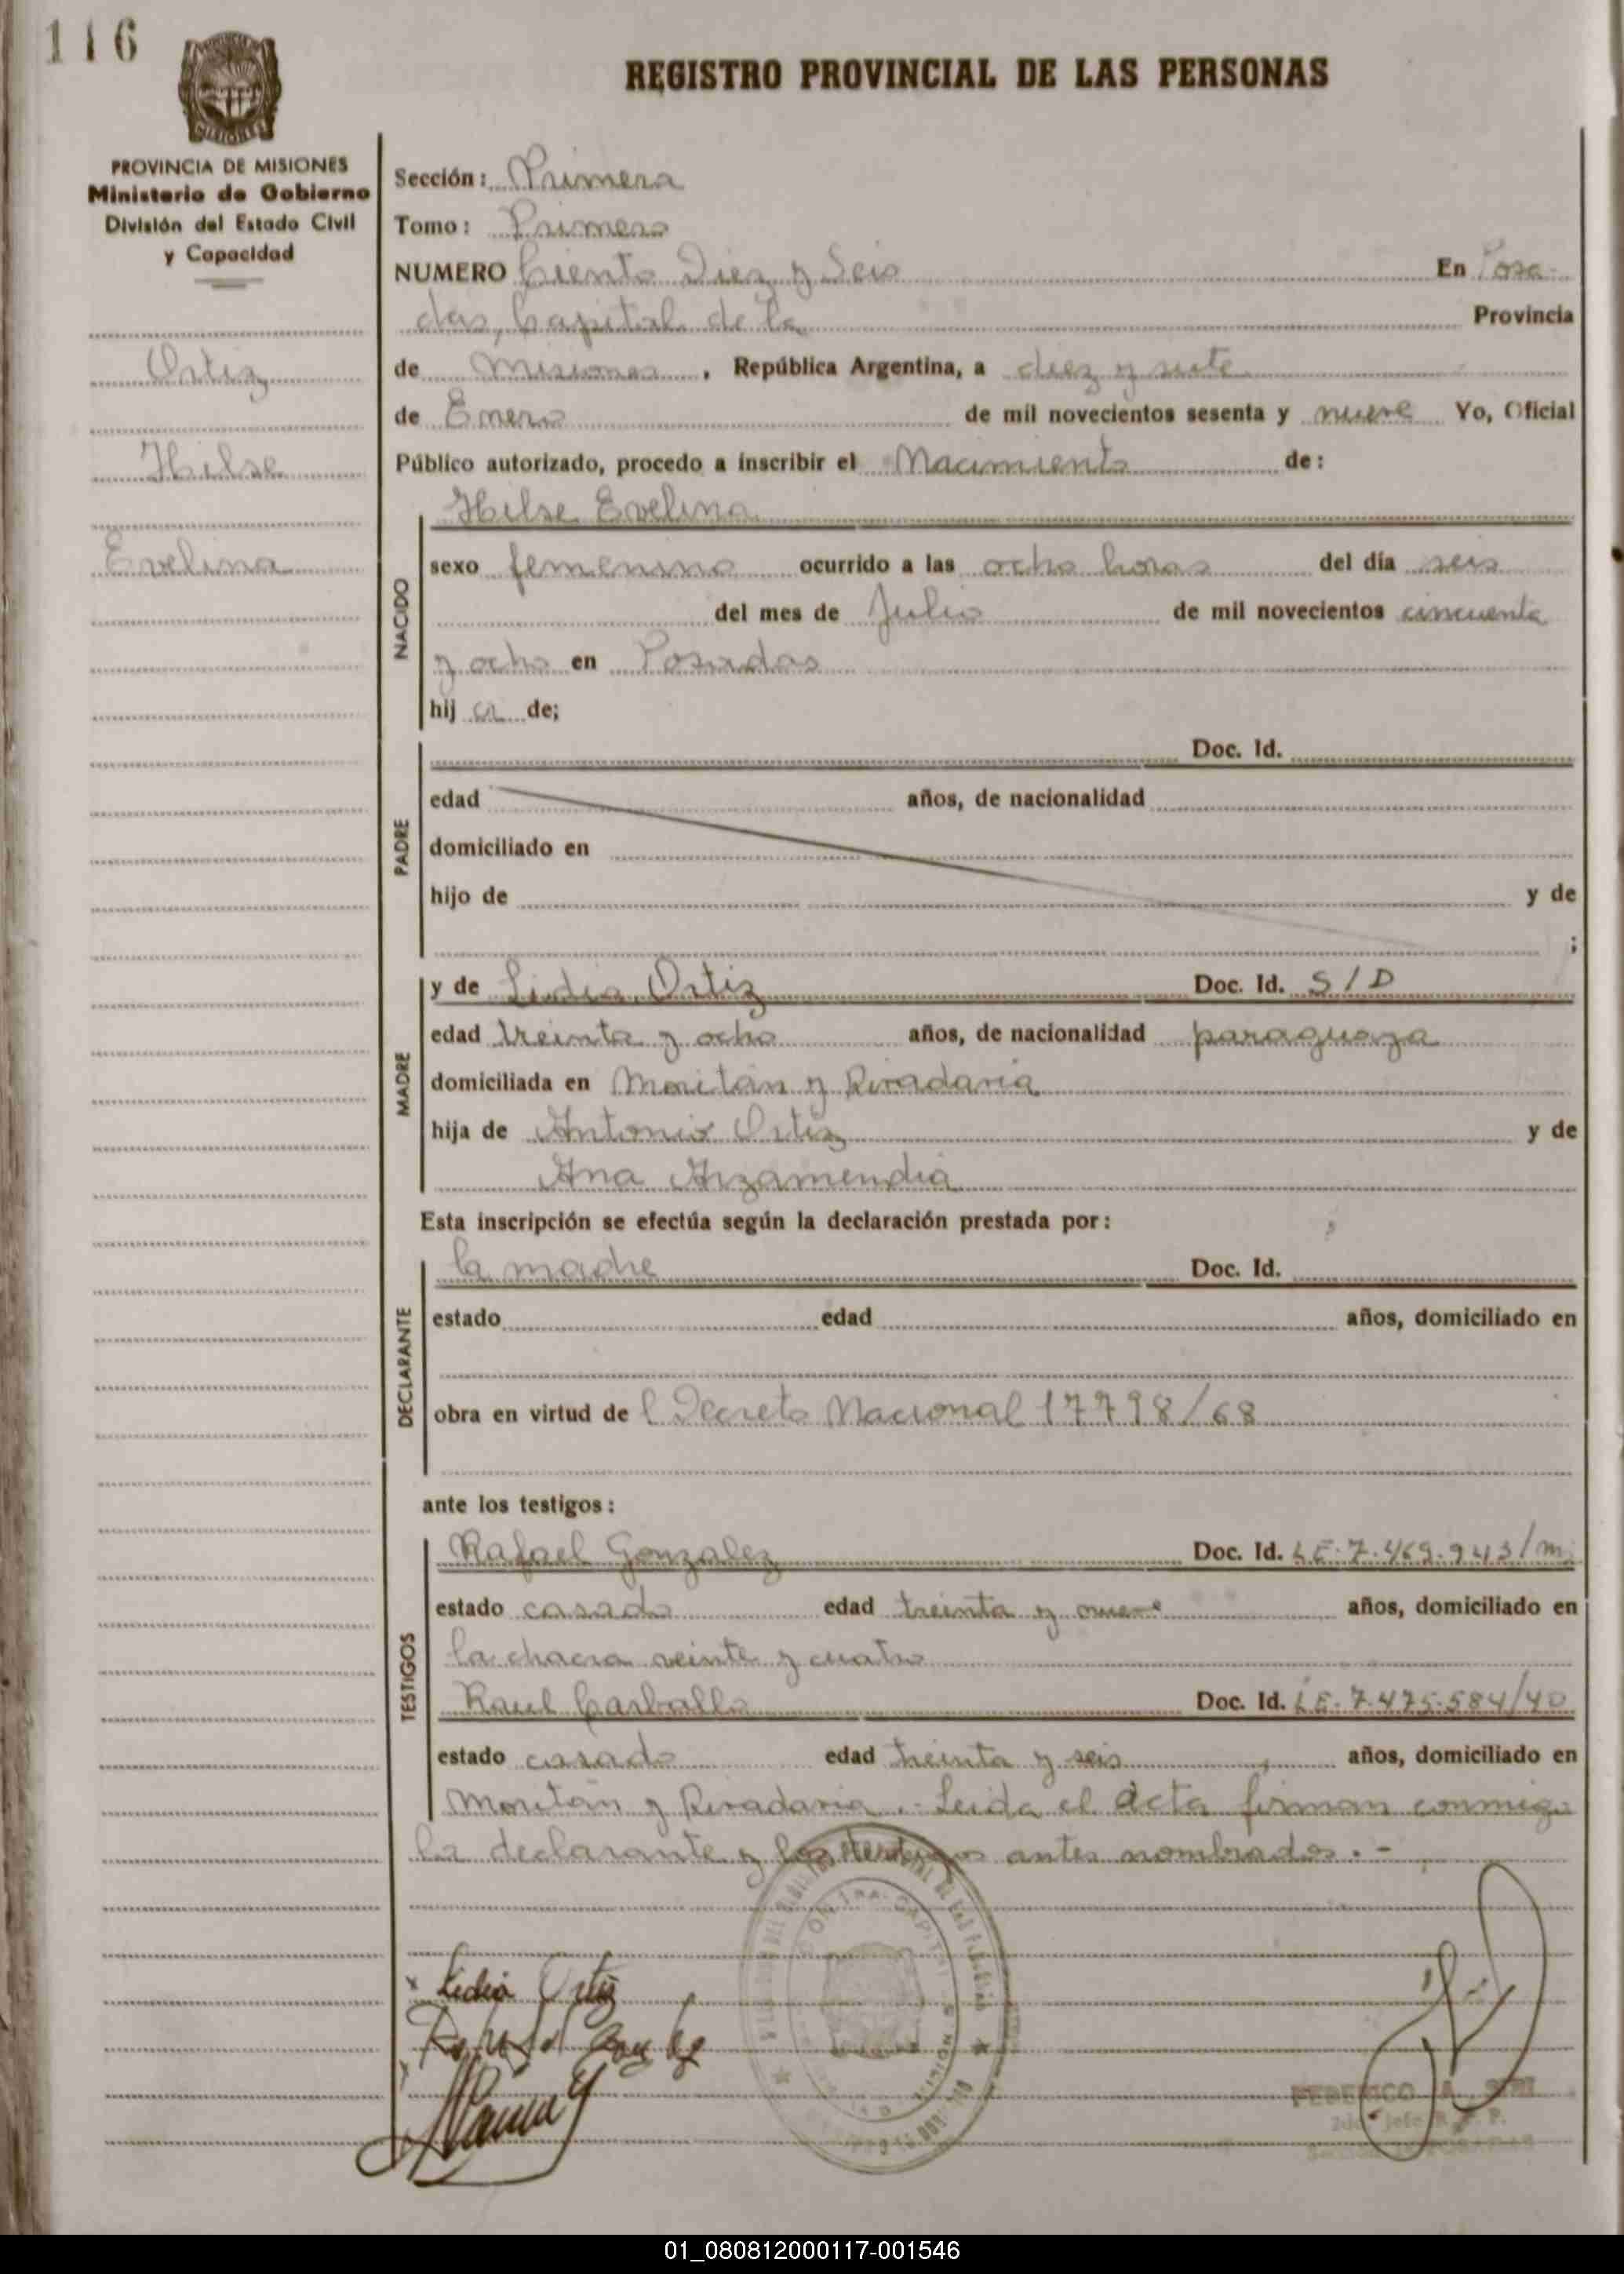 116
REGISTRO PROVINCIAL DE LAS PERSONAS
MISIONES
PROVINCIA DE MISIONES
Ministerio de Gobierno
División del Estado Civil
y Capacidad
Ortiz
Hilse
Evelina
Sección: Primera
Tomo: Primero
NUMERO Ciento Diez y Seis En Posa-
das, Capital de la Provincia
de Misiones, República Argentina, a diez y siete
de Enero de mil novecientos sesenta y nueve Yo, Oficial
Público autorizado, procedo a inscribir el Nacimiento de:
NACIDO
Hilse Evelina
sexo femenino ocurrido a las ocho horas del día seis
del mes de Julio de mil novecientos cincuenta
y ocho en Posadas
hij a de;
PADRE
Doc. Id.
edad años, de nacionalidad
domiciliado en
hijo de y de
;
MADRE
y de Lidia Ortiz Doc. Id. S/D
edad treinta y ocho años, de nacionalidad paraguaya
domiciliada en Moritán y Rivadavia
hija de Antonio Ortiz y de
Ana Arzamendia
Esta inscripción se efectúa según la declaración prestada por:
DECLARANTE
la madre Doc. Id.
estado edad años, domiciliado en
obra en virtud de l Decreto Nacional 17798/68
ante los testigos:
TESTIGOS
Rafael Gonzalez Doc. Id. LE. 7.469.943/M.
estado casado edad treinta y años, domiciliado en
la chacra veinte y cuatro
Raul Carballo Doc. Id. LE. 7.475.584/40
estado casado edad treinta y seis años, domiciliado en
Moritán y Rivadavia.- Leida el acta firman conmigo
la declarante y los testigos antes nombrados.-
Lidia Ortiz
FEDERICO A.
2do. Jefe R. P. P.
01_080812000117-001546